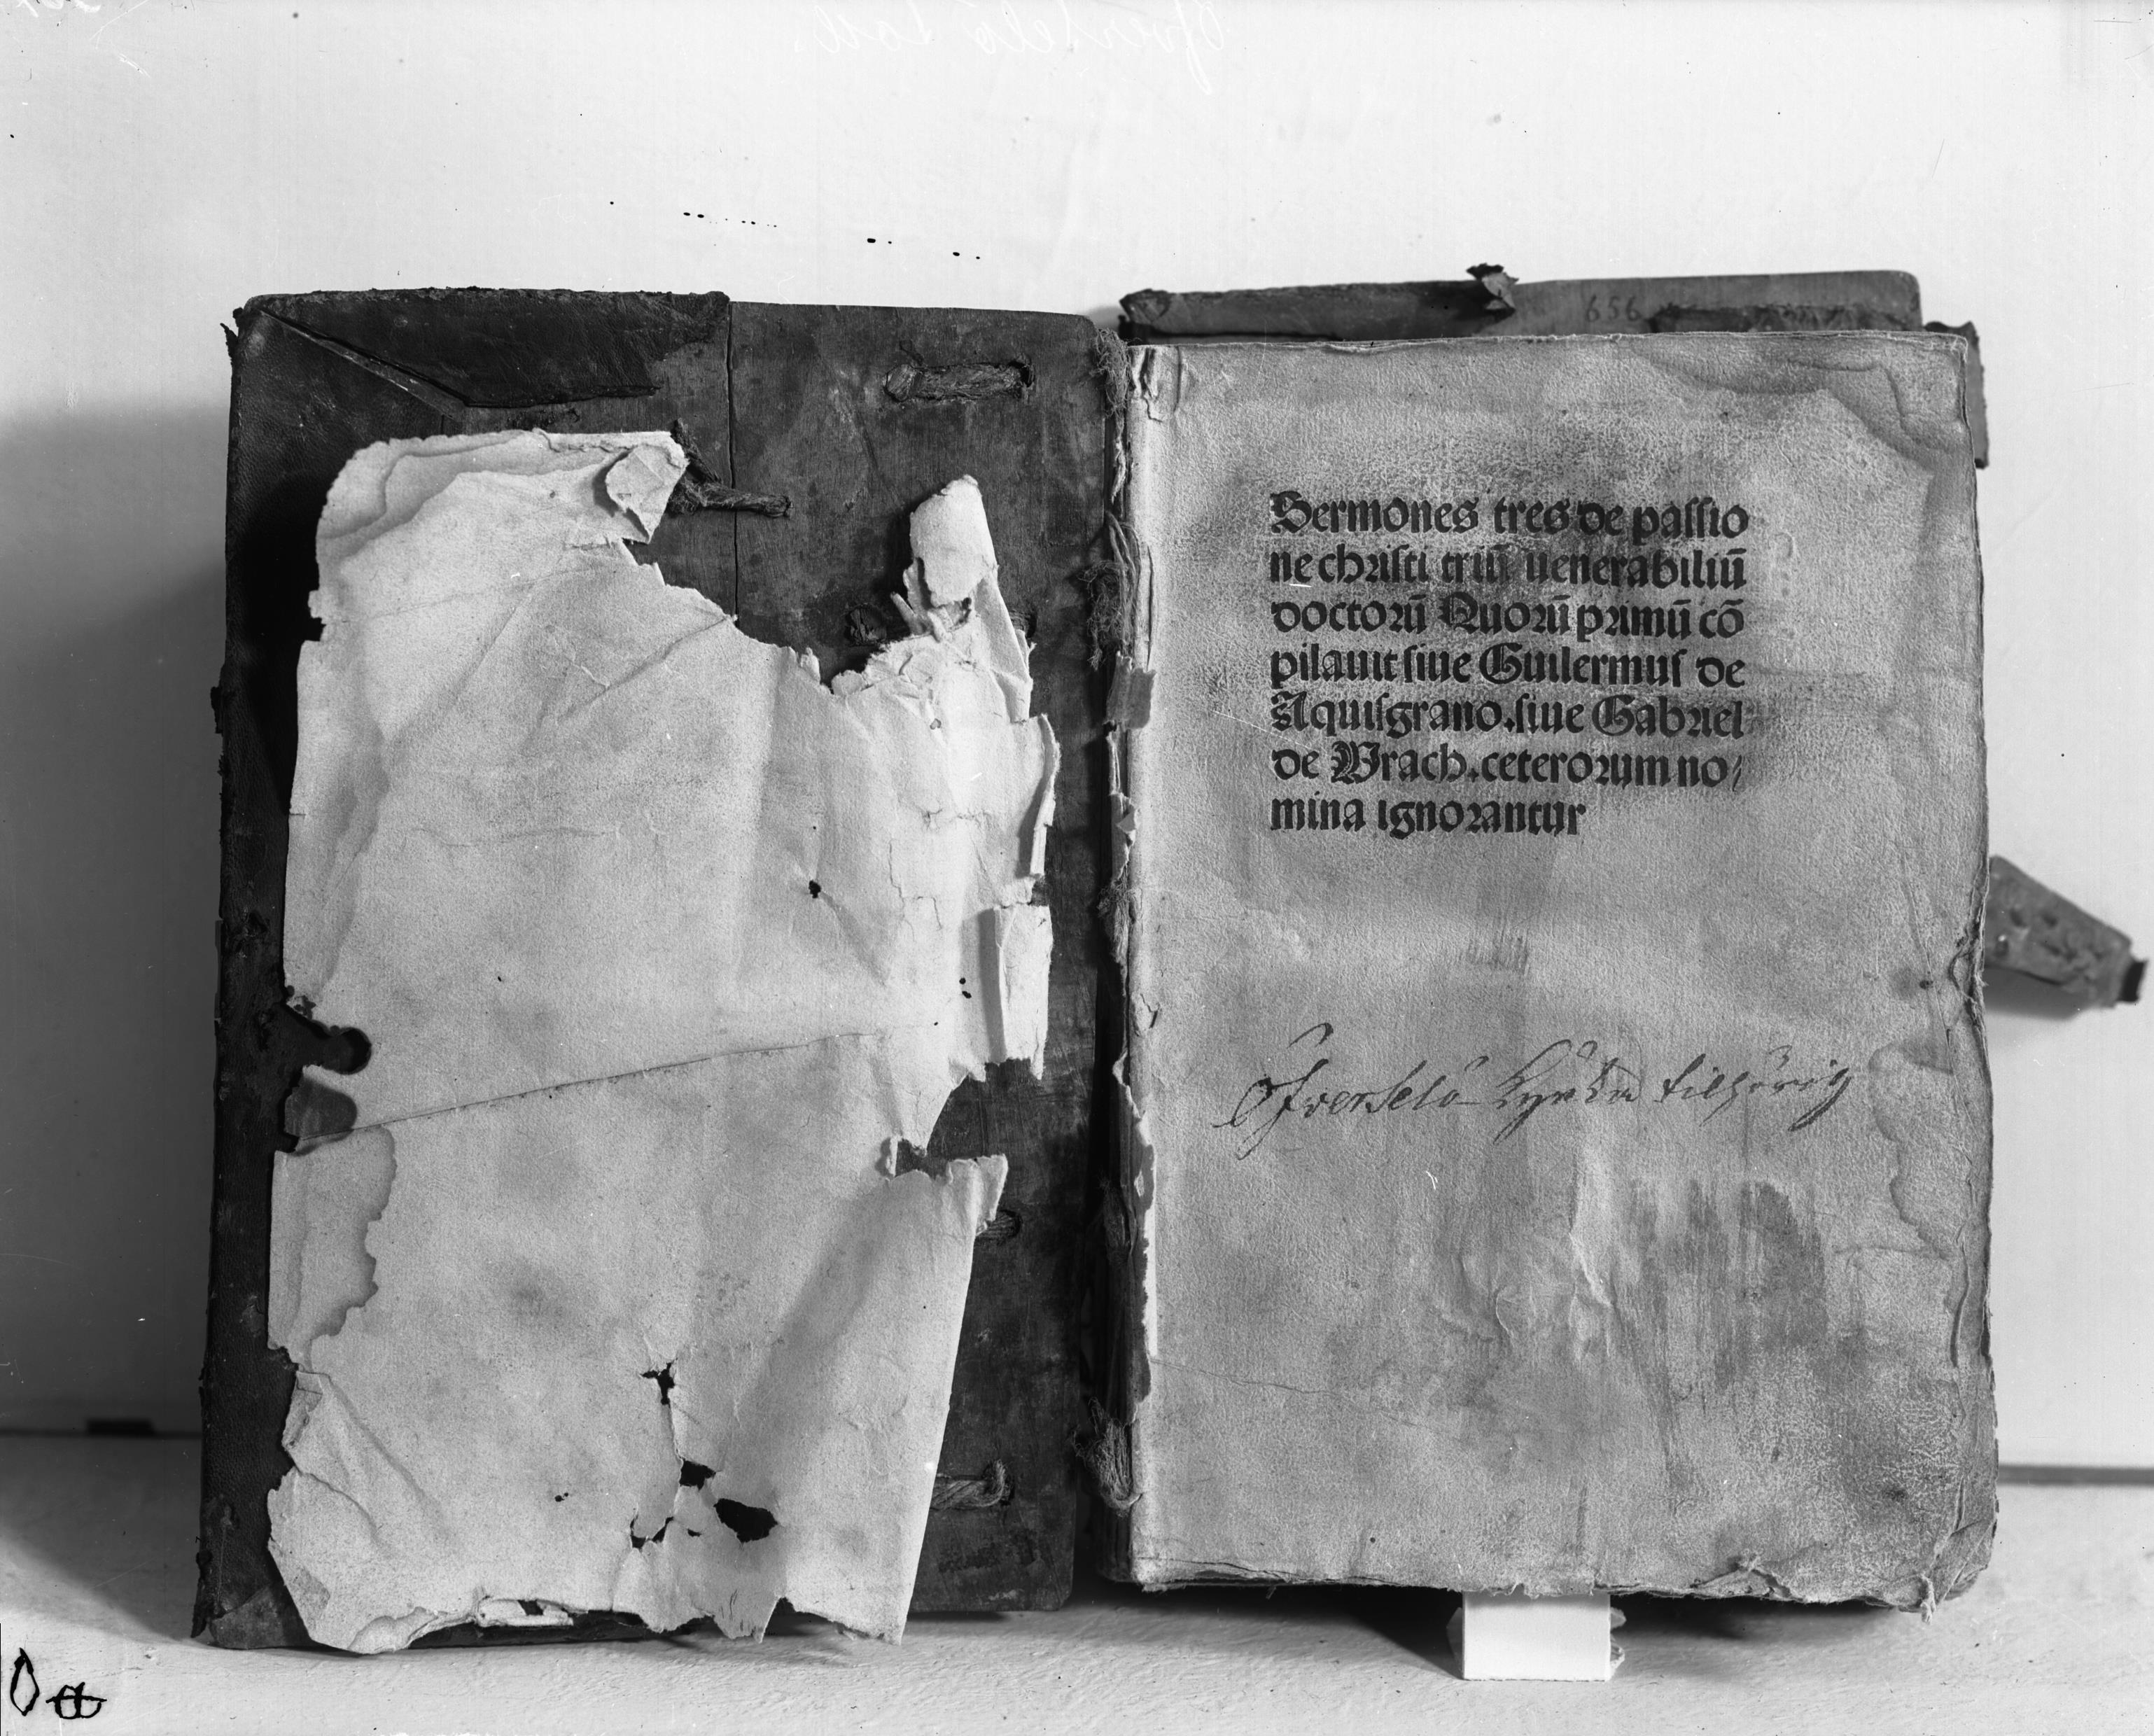 656
Sermones tres de passio
ne christi triū uenerabiliū
doctorū Quorū primū cō
pilauit siue Guilermus de
Aquisgrano.siue Gabriel
de Vrach.ceterorum no/
mina ignorantur
Öfverselö Kyrka tillhörig